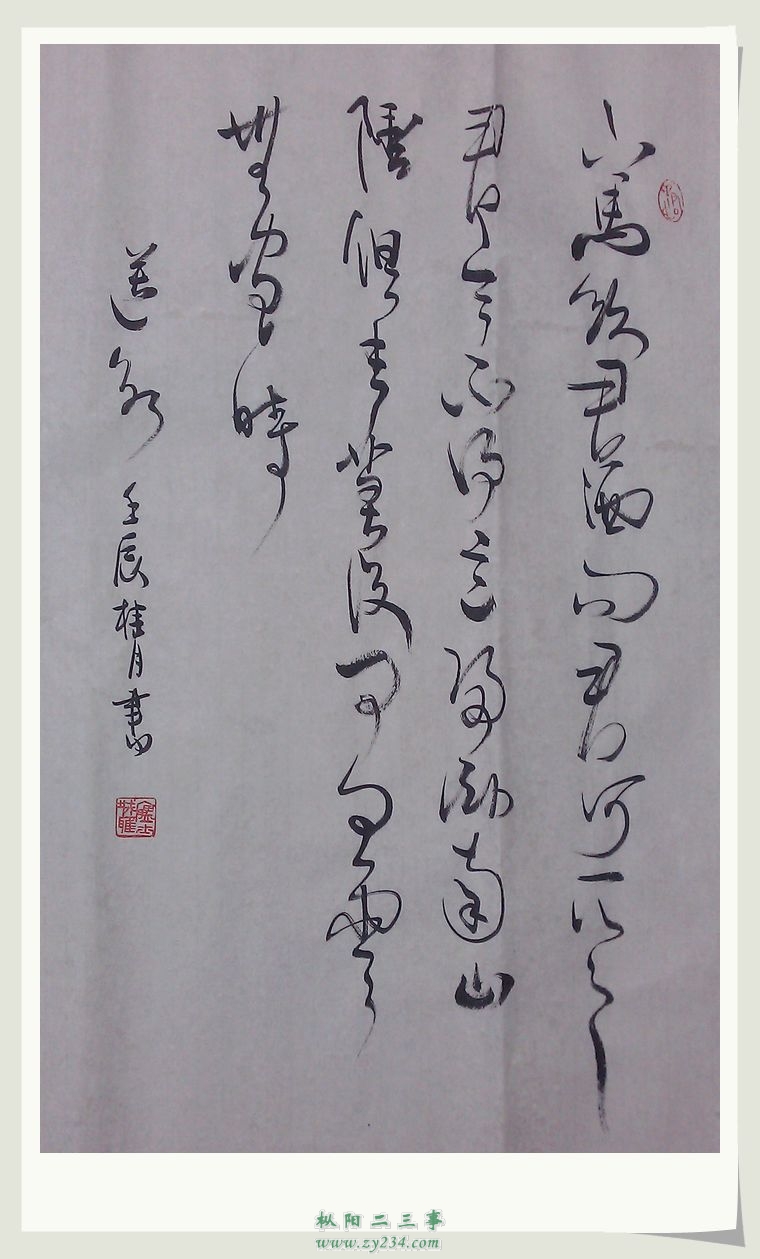 下馬飲君酒問君何所之
君言不得意歸卧南山
陲但去莫復問白雲
無盡時
送別 壬辰桂月書
枞阳二三事
www.zy234.com